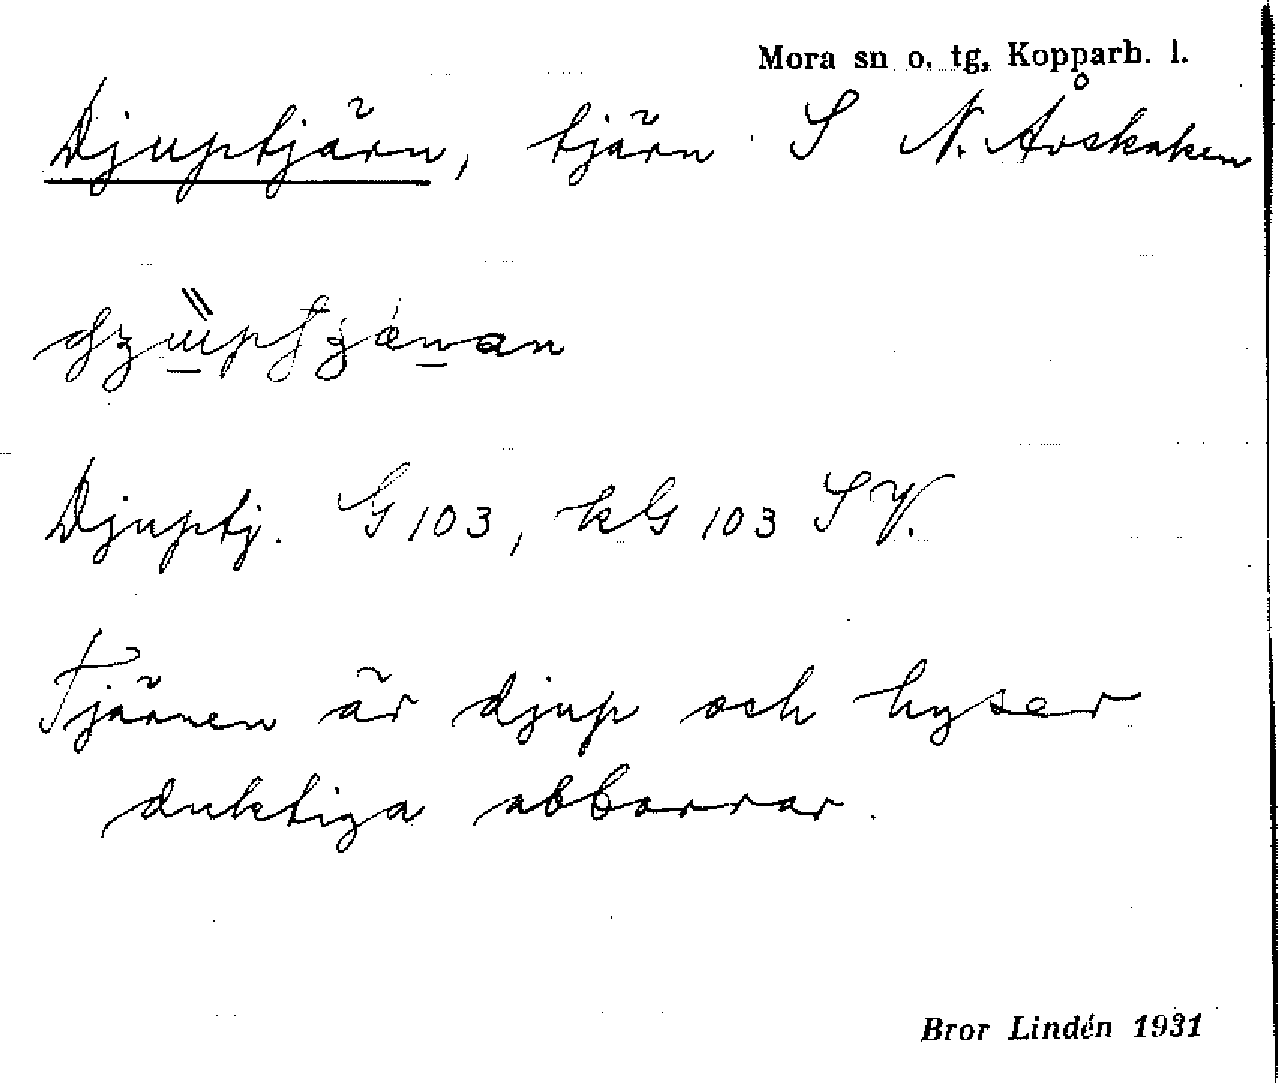 Mora sn o. tg, Kopparb. l.
Djuptjärn, tjärn S N. Åvskaken
Djuptj. G 103, kG 103 SV.
Tjärnen är djup och hyser
duktiga abborrar.
Bror Lindén 1931